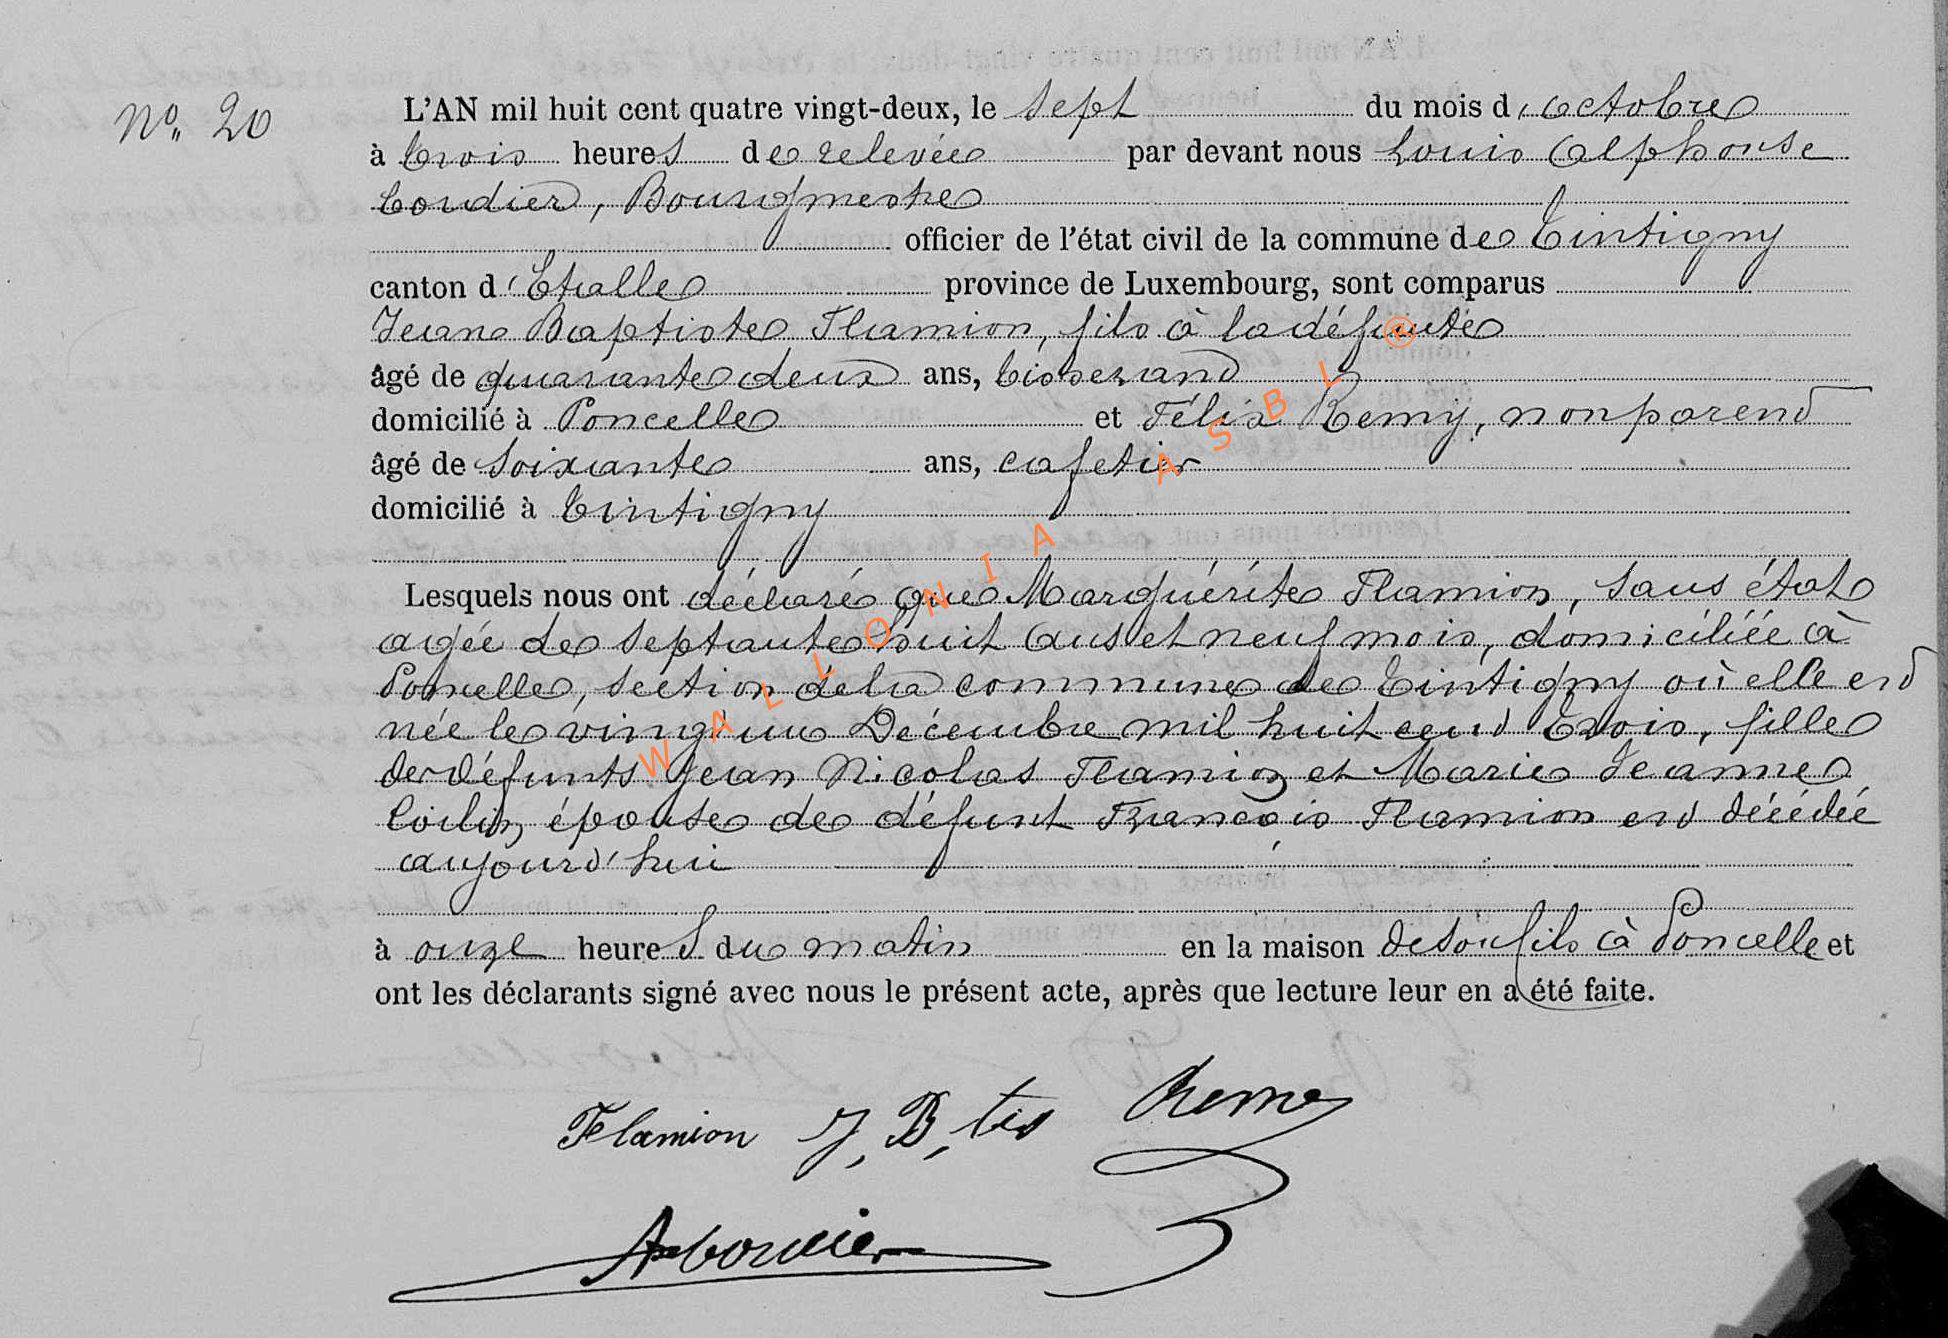 No 20
L'AN mil huit cent quatre vingt-deux, le sept du mois d'octobre
à trois heures de relevée par devant nous Louis Alphonse
Cordier, Bourgmestre
officier de l'état civil de la commune de Tintigny
canton d'Etalle province de Luxembourg, sont comparus
Jean Baptiste Flamion, fils à la défunte
âgé de quarante deux ans, tisserand
domicilié à Poncelle et Félix Remy, non parend
âgé de soixante ans, cafetier
domicilié à Tintigny
Lesquels nous ont déclaré que Marguérite Flamion, sans état
agée de septante huit ans et neuf mois, domiciliée à
Poncelle, section de la commune de Tintigny où elle est
née le vingt un Décembre mil huit cent trois, fille
des défunts Jean Nicolas Flamion et Marie Jeanne
épouse de défunt François Flamion est décédée
aujourd'hui
à onze heures du matin en la maison de son fils à Poncelle et
ont les déclarants signé avec nous le présent acte, après que lecture leur en a été faite.
Flamion J, B, tis Remy
A Cordier
WALLONIA ASBL ®